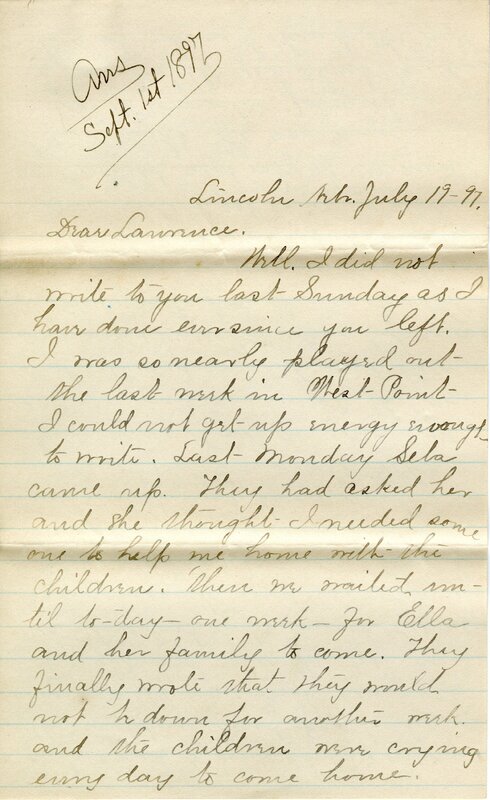 Ans
Sept. 1st 1897
Lincoln Nebr. July 19-97.
Dear Lawrence.
Well. I did not
write to you last Sunday as I
have done ever since you left.
I was so nearly played out
the last week in West-Point
I could not get up energy enough
to write. Last Monday Seba
came up. They had asked her
and she thought I needed some
one to help me home with the
children. Then we waited un-
til to-day - one week - for Ella
and her family to come. They
finally wrote that they would
not be down for another week.
and the children were crying
every day to come home.